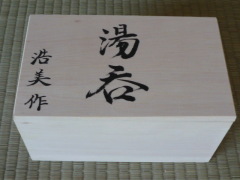 湯呑
浩美作